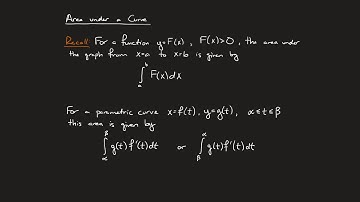 Area under a Curve
Recall: For a function y=F(x), F(x)>0, the area under
the graph from x=a to x=b is given by
∫_a^b F(x)dx
For a parametric curve x=f(t), y=g(t), α≤t≤β
this area is given by
∫_α^β g(t)f'(t)dt or ∫_β^α g(t)f'(t)dt